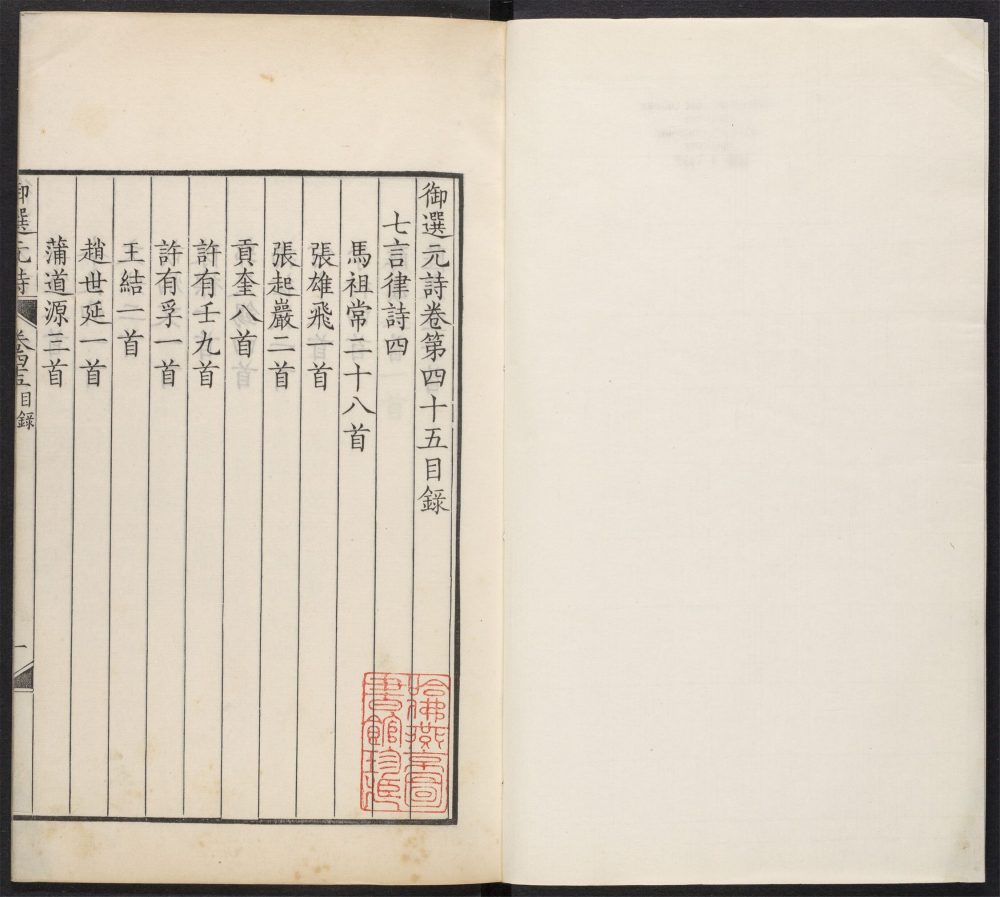 御選元詩卷第四十五目錄
七言律詩四
馬祖常二十八首
張雄飛一首
張起巖二首
貢奎八首
許有壬九首
許有孚一首
王結一首
趙世延一首
蒲道源三首
御選元詩 卷四十五目錄 一
哈佛燕京圖
書館珍藏